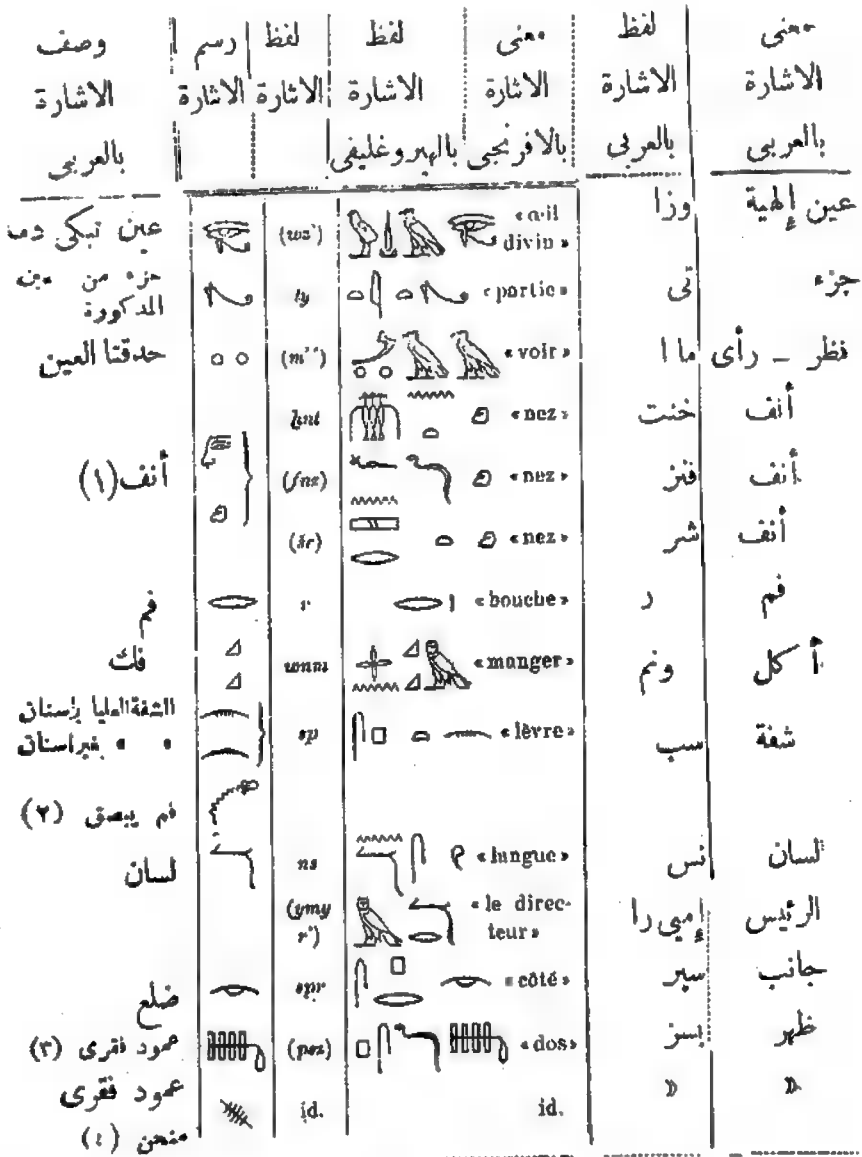 معنى الاشارة بالعربى | لفظ الاشارة بالعربى | معنى الاشارة بالافرنجى | لفظ الاشارة بالهيروغليفى | لفظ الاشارة | رسم الاشارة | وصف الاشارة بالعربى
عين إلهية | وزا | «œil divin» | (wz') | عين تبكى
جزء | تى | «partie» | ty | جزء من عين المذكورة
نظر – رأى | ما ا | «voir» | (m'') | حدقتا العين
أنف | خنت | «nez» | ḫnt | أنف (١)
أنف | فنز | «nez» | (fnz)
أنف | شر | «nez» | (šr)
فم | ر | «bouche» | r | فم
أ كل | ونم | «manger» | wnm | فك
شفة | سب | «lèvre» | sp | الشفة العليا بأسنان
» » بغير اسنان
فم يبصق (٢)
لسان | نس | «langue» | ns | لسان
الرئيس | إميى را | «le directeur» | (ymy r')
جانب | سبر | «côté» | spr | ضلع
ظهر | بسز | «dos» | (psz) | عمود فقرى (٣)
» | » | id. | id. | عمود فقرى منحن (٤)